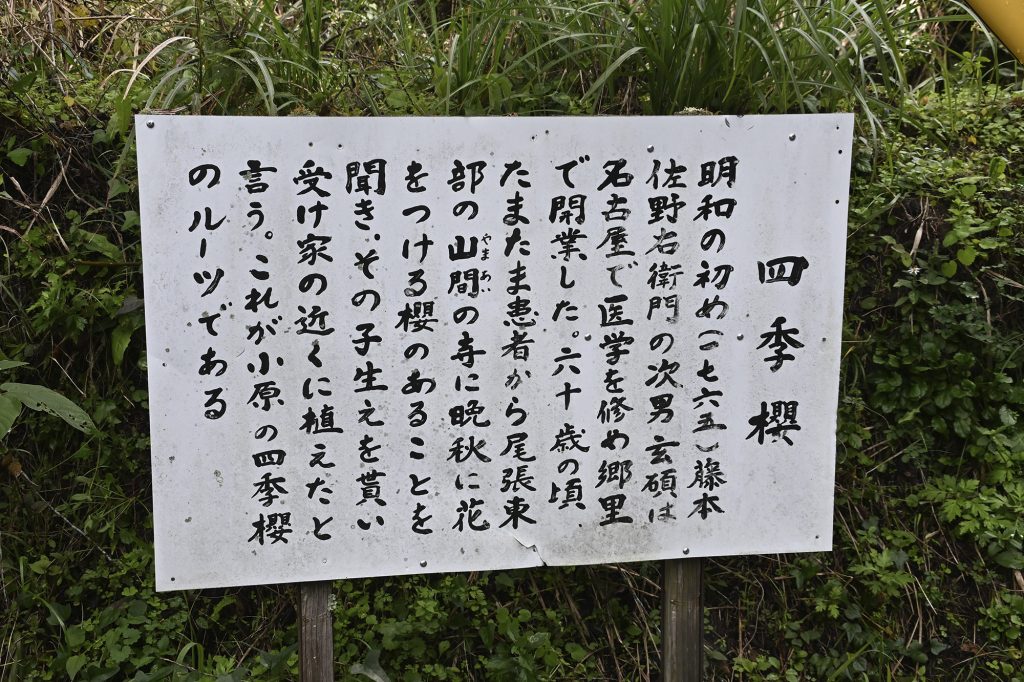 四季櫻
明和の初め(一七六五)藤本
佐野右衛門の次男玄碩は
名古屋で医学を修め郷里
で開業した。六十歳の頃
たまたま患者から尾張東
部の山間の寺に晩秋に花
やまあい
をつける櫻のあることを
聞き、その子生えを貰い
受け家の近くに植えたと
言う。これが小原の四季櫻
のルーツである